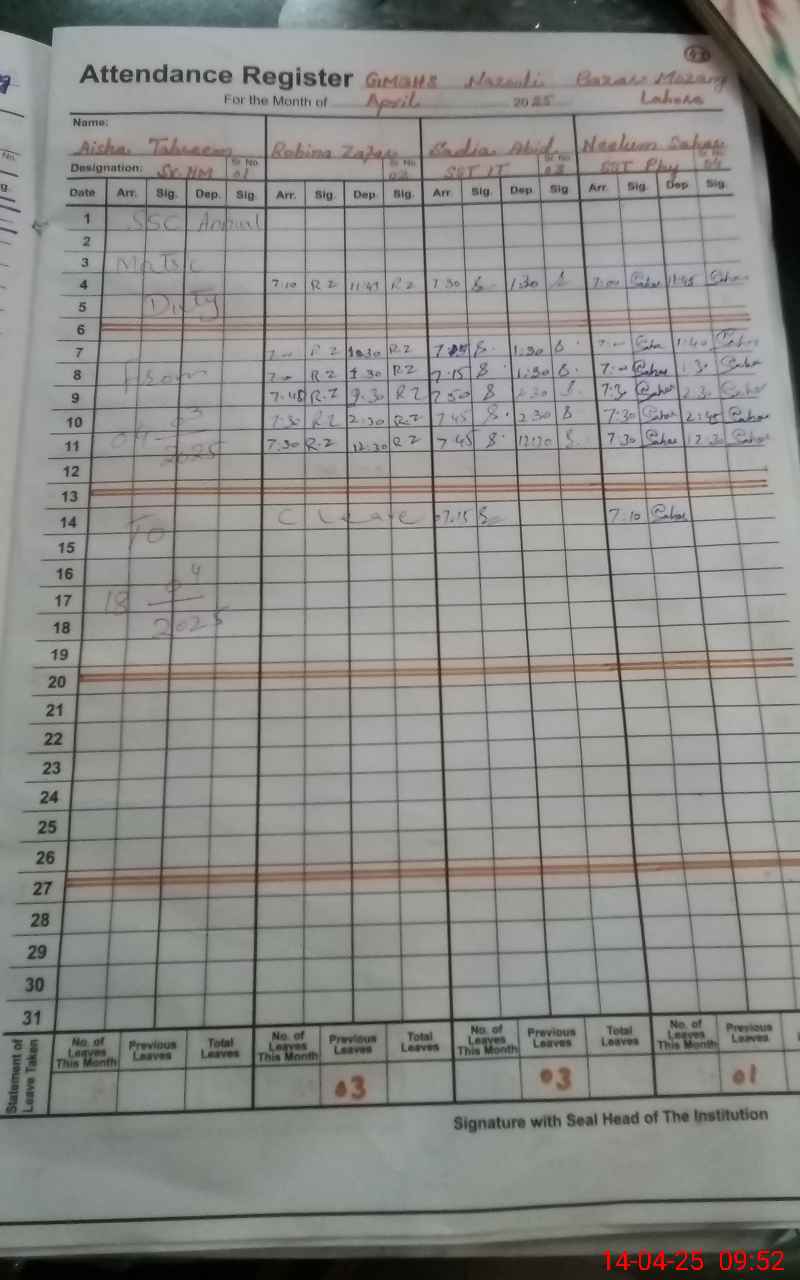 Attendance Register GMGHS Bazaar Mozang
For the Month of April 2025 Lahore
Name:
Aisha Tabassum Robina Zafar Sadia Abid Neelum Sahar
Designation: Sr. HM Sr. No. 01 Sr. No. 02 SST IT Sr. No. 03 SST Phy 04
Date Arr. Sig. Dep. Sig. Arr. Sig. Dep. Sig. Arr. Sig. Dep. Sig. Arr. Sig. Dep. Sig.
1 SSC Annual
2
3 Matric
4 7:10 RZ 11:47 RZ 7:30 S. 1:30 7:00 Sahar 11:45 Sahar
5 Duty
6
7 7:00 RZ RZ S. 1:30 S. 7:00 Sahar 1:40 Sahar
8 From 7:00 RZ 1:30 RZ 7:15 S 1:30 S. 7:00 Sahar 1:30 Sahar
9 7:45 R.Z 9.30 RZ 7:50 S 2:30 S. 7:30 Sahar 2:30 Sahar
10 7:30 RZ 2:30 RZ 7:45 S. 2:30 S 7:30 Sahar 2:45 Sahar
11 2025 7:30 R.Z 12:30 RZ 7:45 S. 12:30 S. 7:30 Sahar 12:30 Sahar
12
13
14 To C Leave 07:15 S 7:10 Sahar
15
16
17 18 04
18 2025
19
20
21
22
23
24
25
26
27
28
29
30
31
Statement of Leave Taken
No. of Leaves This Month Previous Leaves Total Leaves No. of Leaves This Month Previous Leaves Total Leaves No. of Leaves This Month Previous Leaves Total Leaves No. of Leaves This Month Previous Leaves
03 03 01
Signature with Seal Head of The Institution
14-04-25 09:52